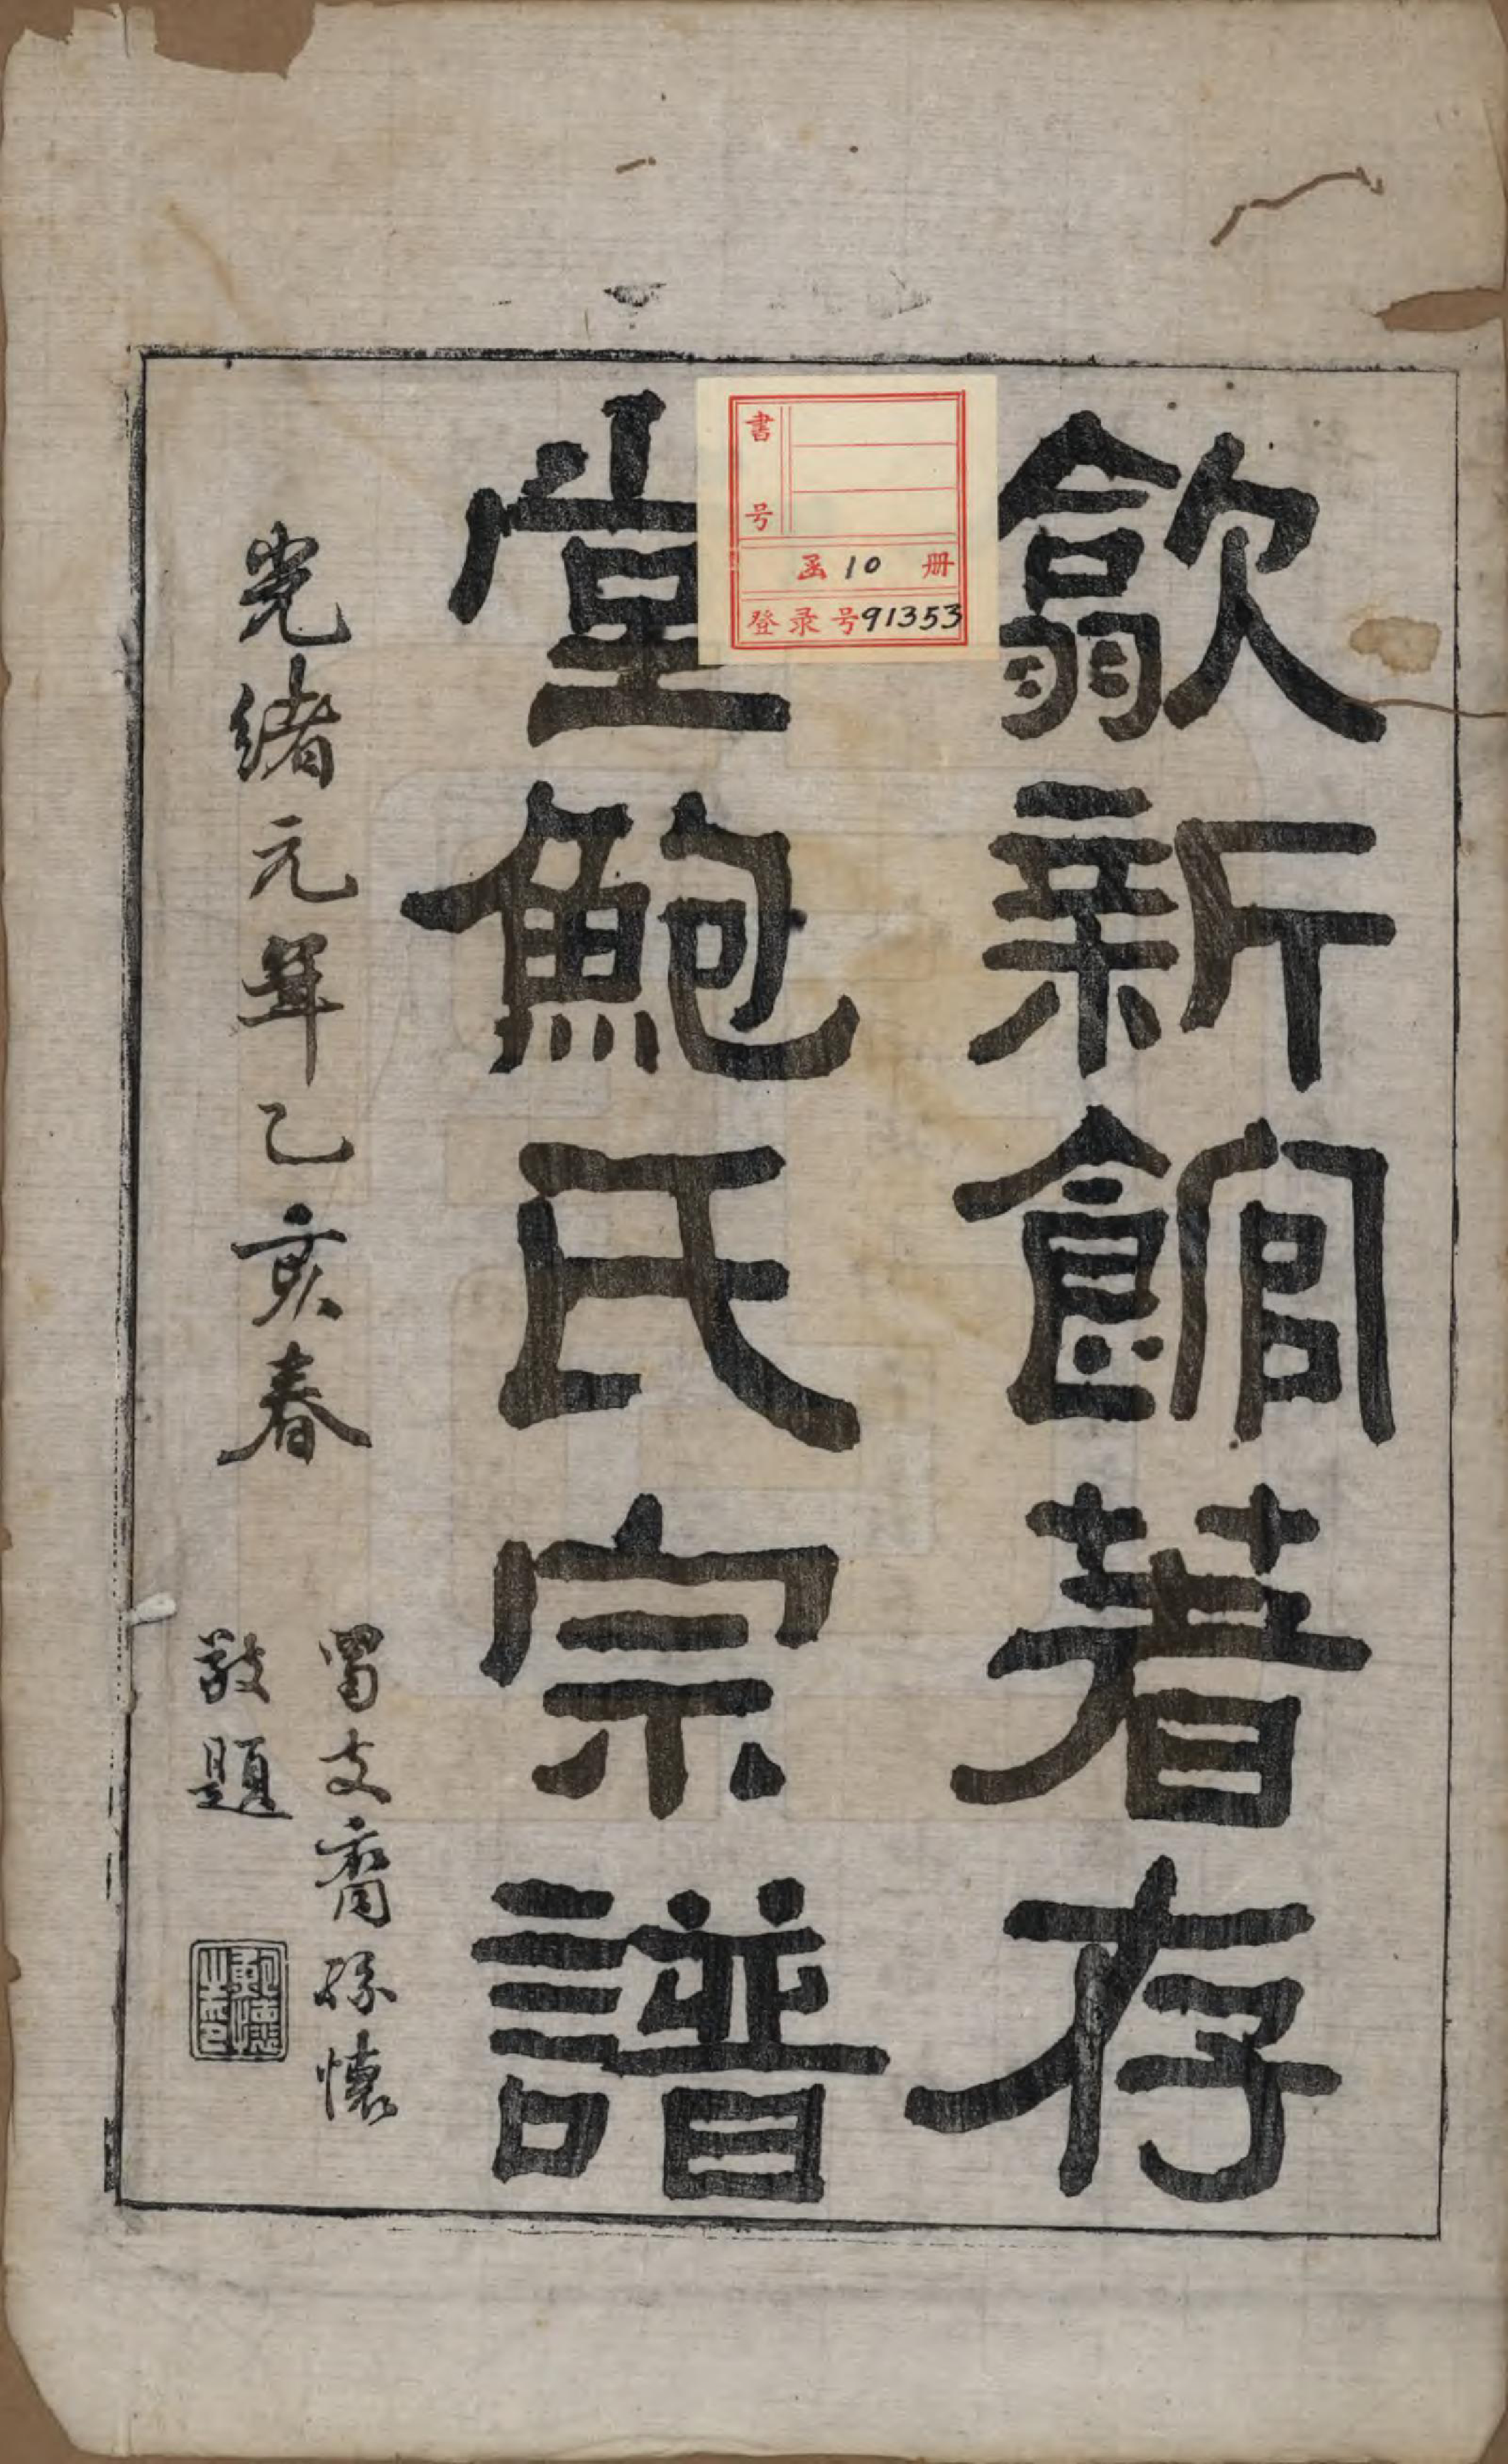 歙新館著存
堂鮑氏宗譜
光緒元年乙亥春
蜀支裔孫懷
敬題
書号
函10册
登录号91353